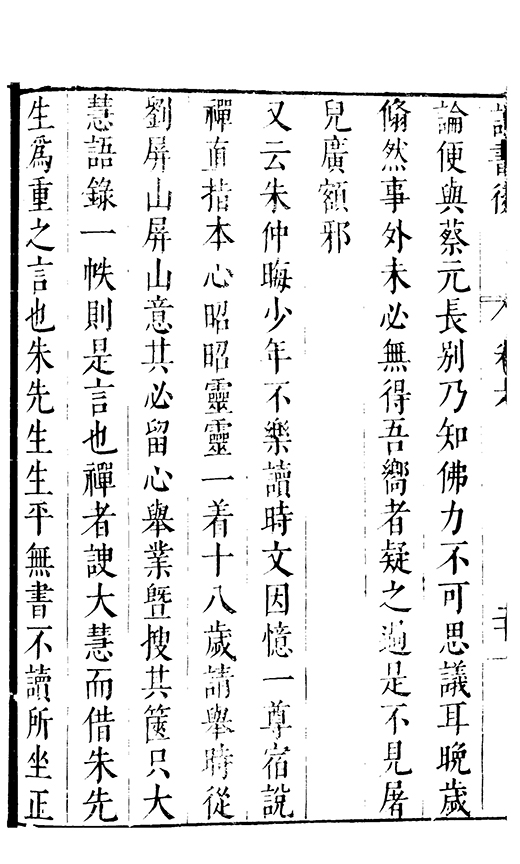 讀書後 卷六
論便與蔡元長别乃知佛力不可思議耳晚歲
翛然事外未必無得吾嚮者疑之過是不見屠
兒廣額邪
又云朱仲晦少年不樂讀時文因憶一尊宿說
禪直指本心昭昭靈靈一着十八歲請舉時從
劉屏山屏山意其必留心舉業曁搜其篋只大
慧語錄一帙則是言也禪者諛大慧而借朱先
生爲重之言也朱先生生平無書不讀所坐正